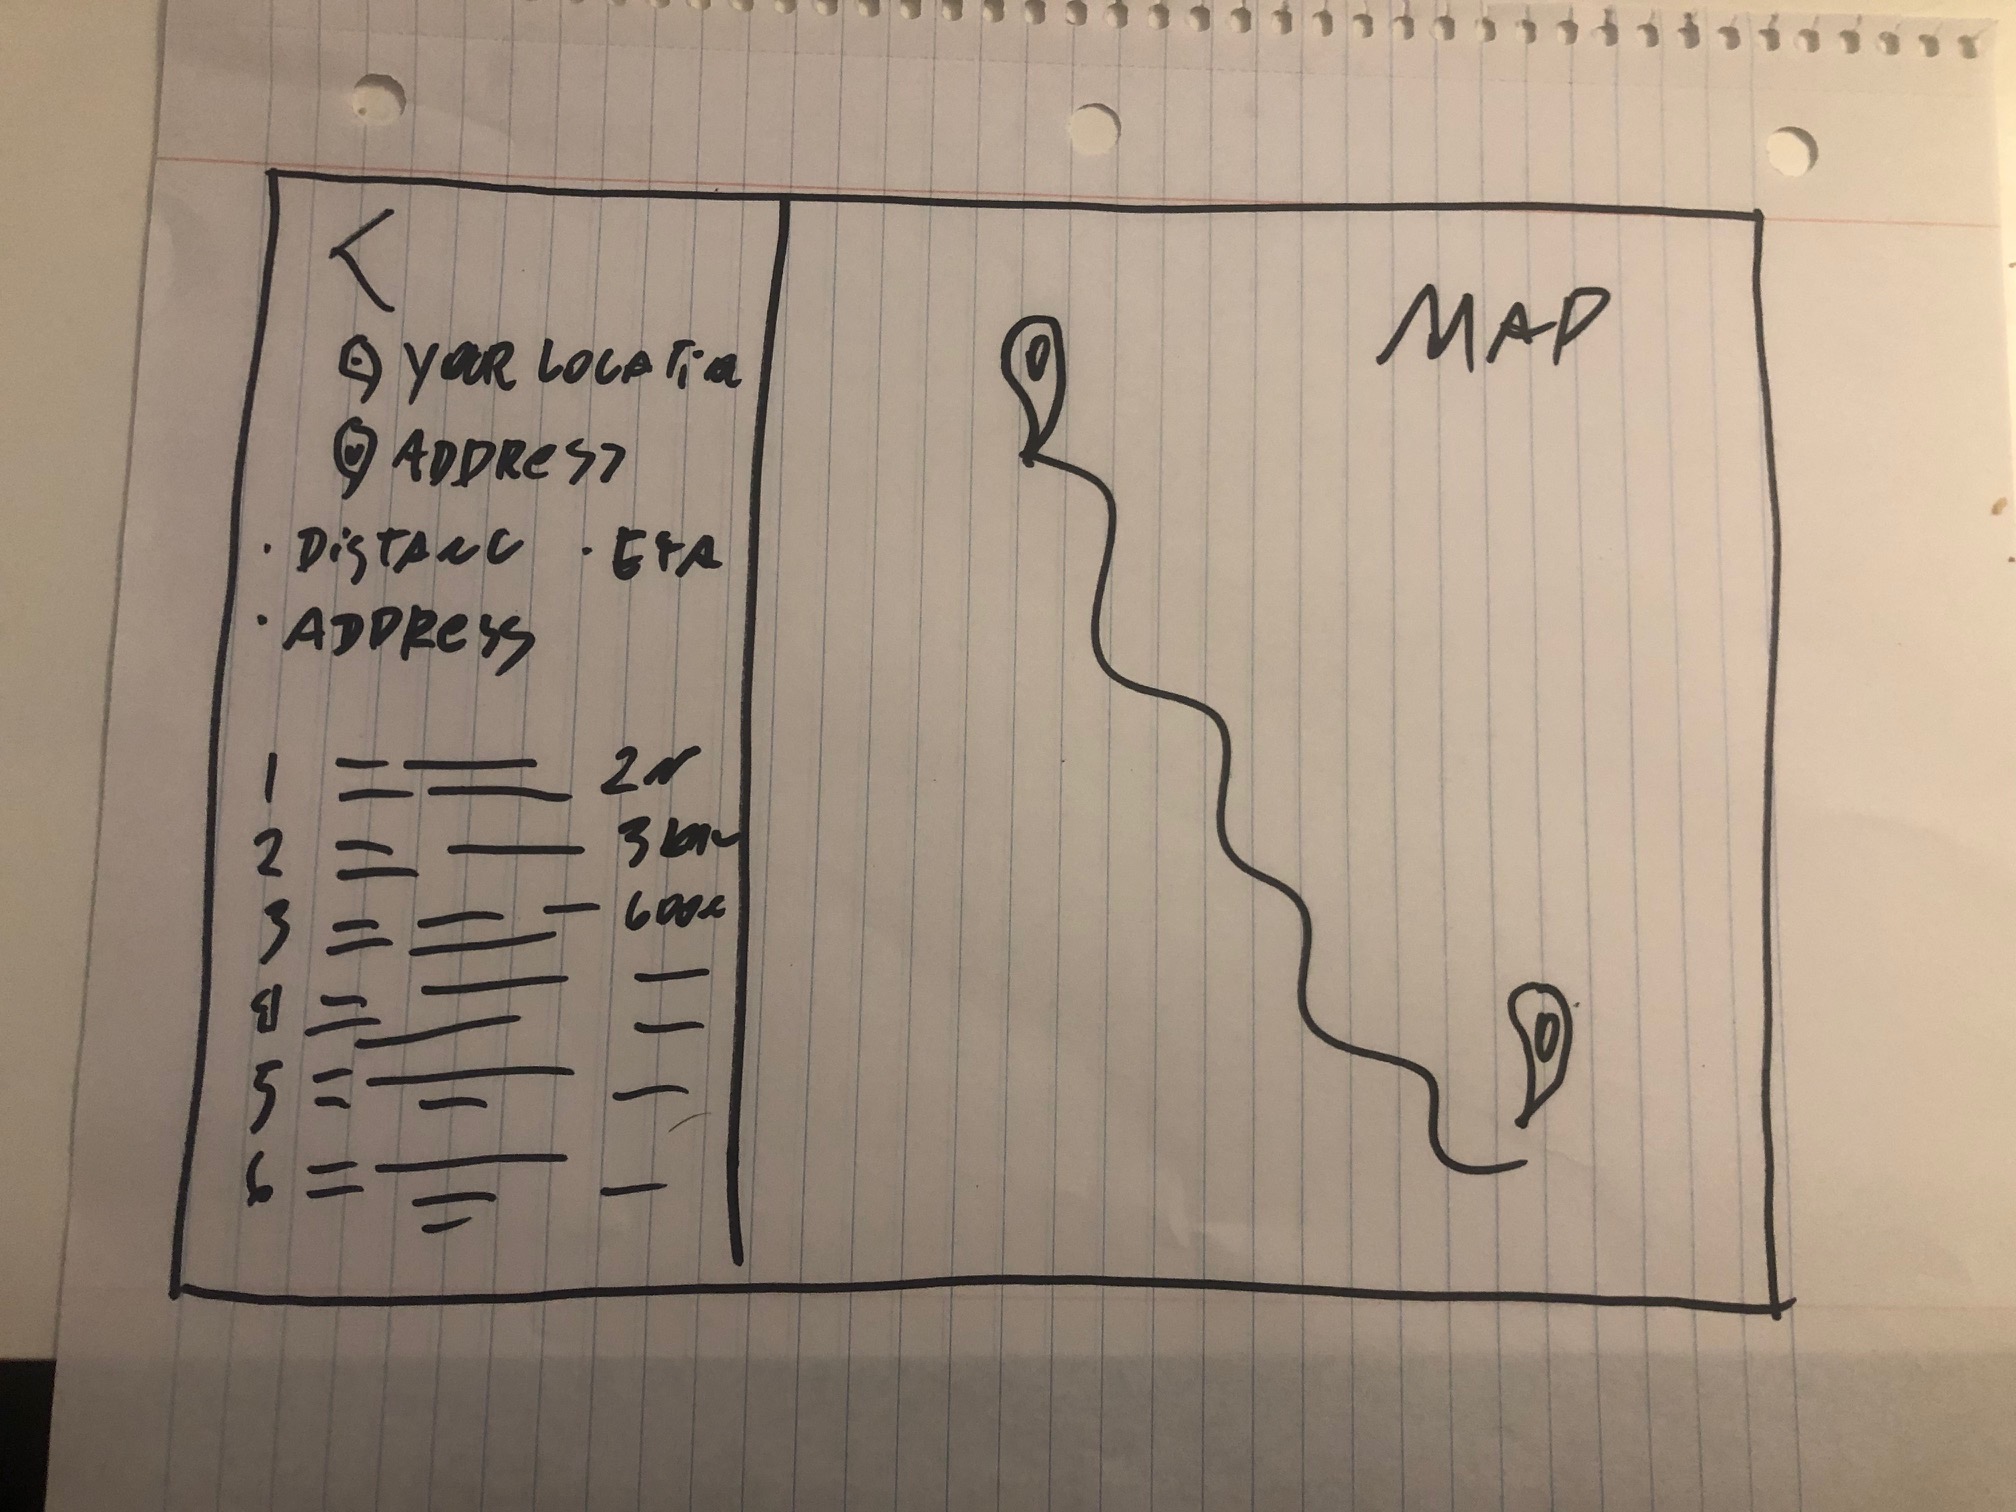 <
YOUR LOCATION
ADDRESS
· DISTANC · ETA
· ADDRESS
1
2 3 km
3
4
5
6
MAP